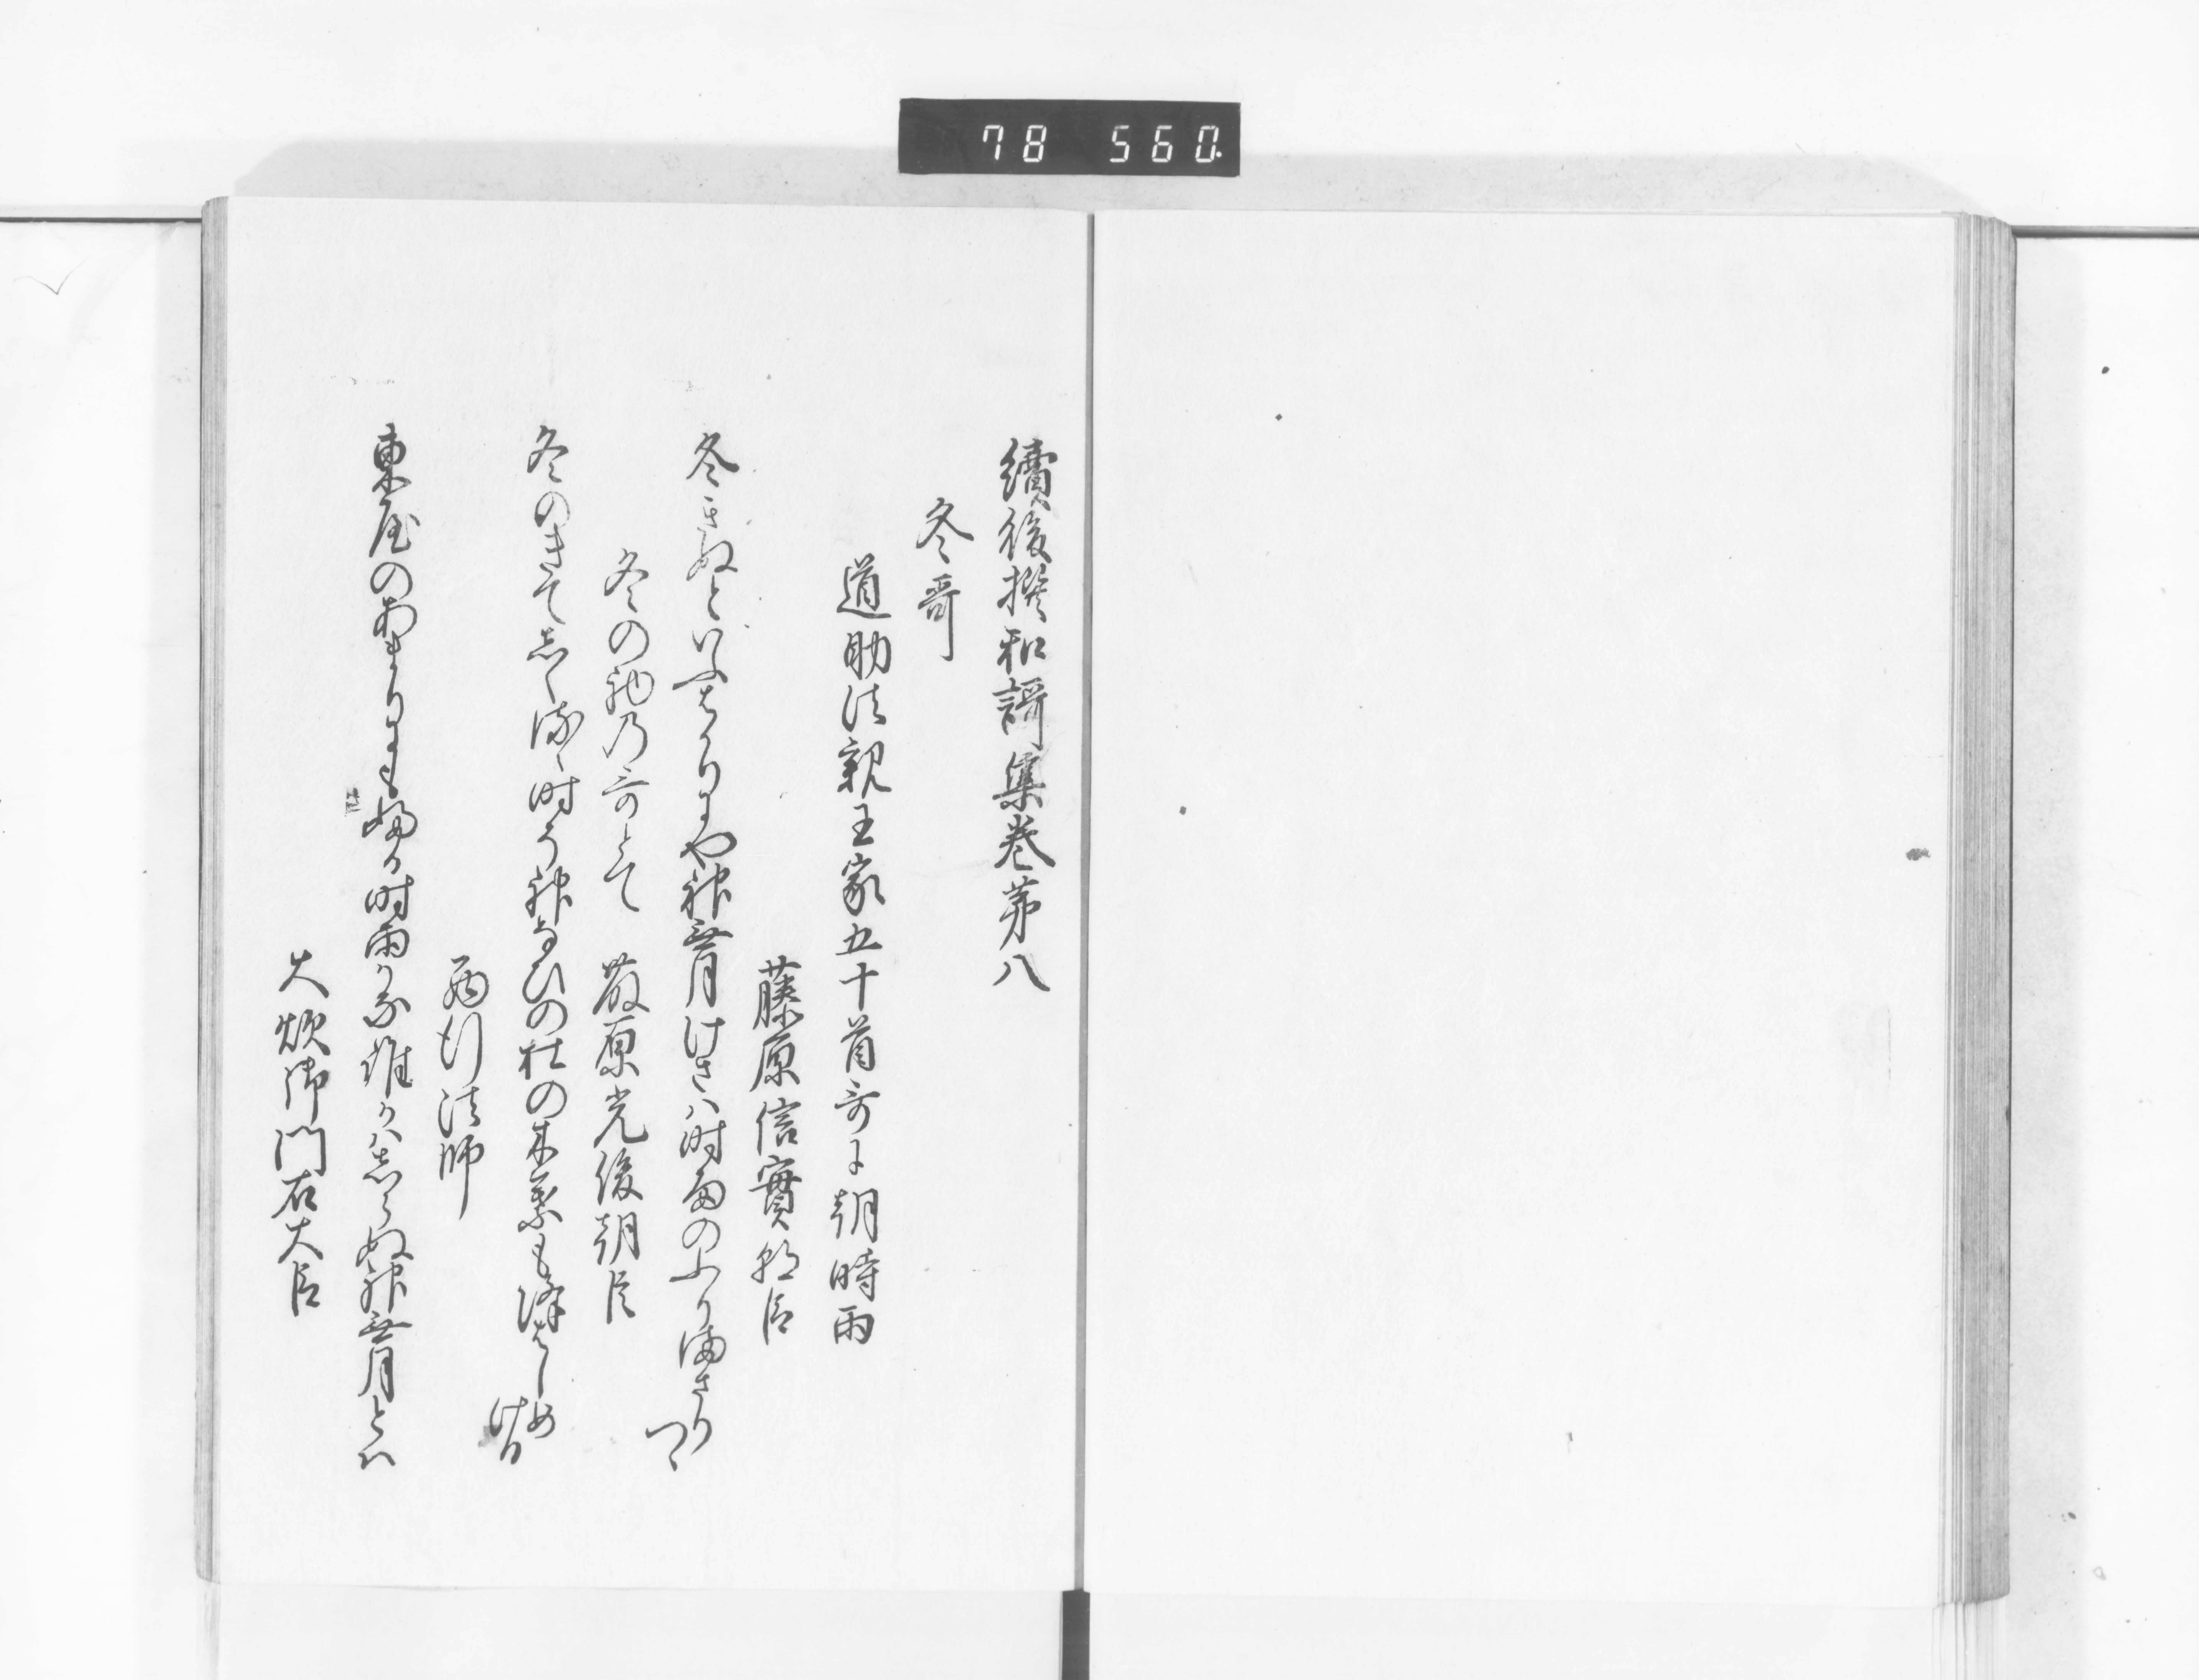 78 560
續後撰和謌集巻第八
冬哥
道助法親王家五十首哥に朝時雨
藤原信實朝臣
冬きぬといふはかりにや神無月けさは時雨のふりまさりつゝ
冬の哥とて 藤原光俊朝臣
冬のきてしくるゝ時そ神なひの杜の木葉も降はしめける
西行法師
東屋のあまりにもふる時雨かな誰かはしらぬ神無月とは
大炊御門右大臣